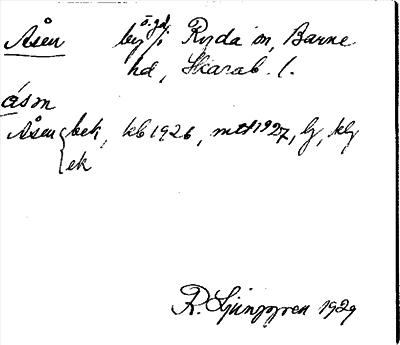 Åsen by ö. gd. i Ryda sn, Barne
hd, Skarab. l.
åsṇ
Åsen { bek, kb 1926, mtl 1927, lj, klj
ek
R. Ljunggren 1929